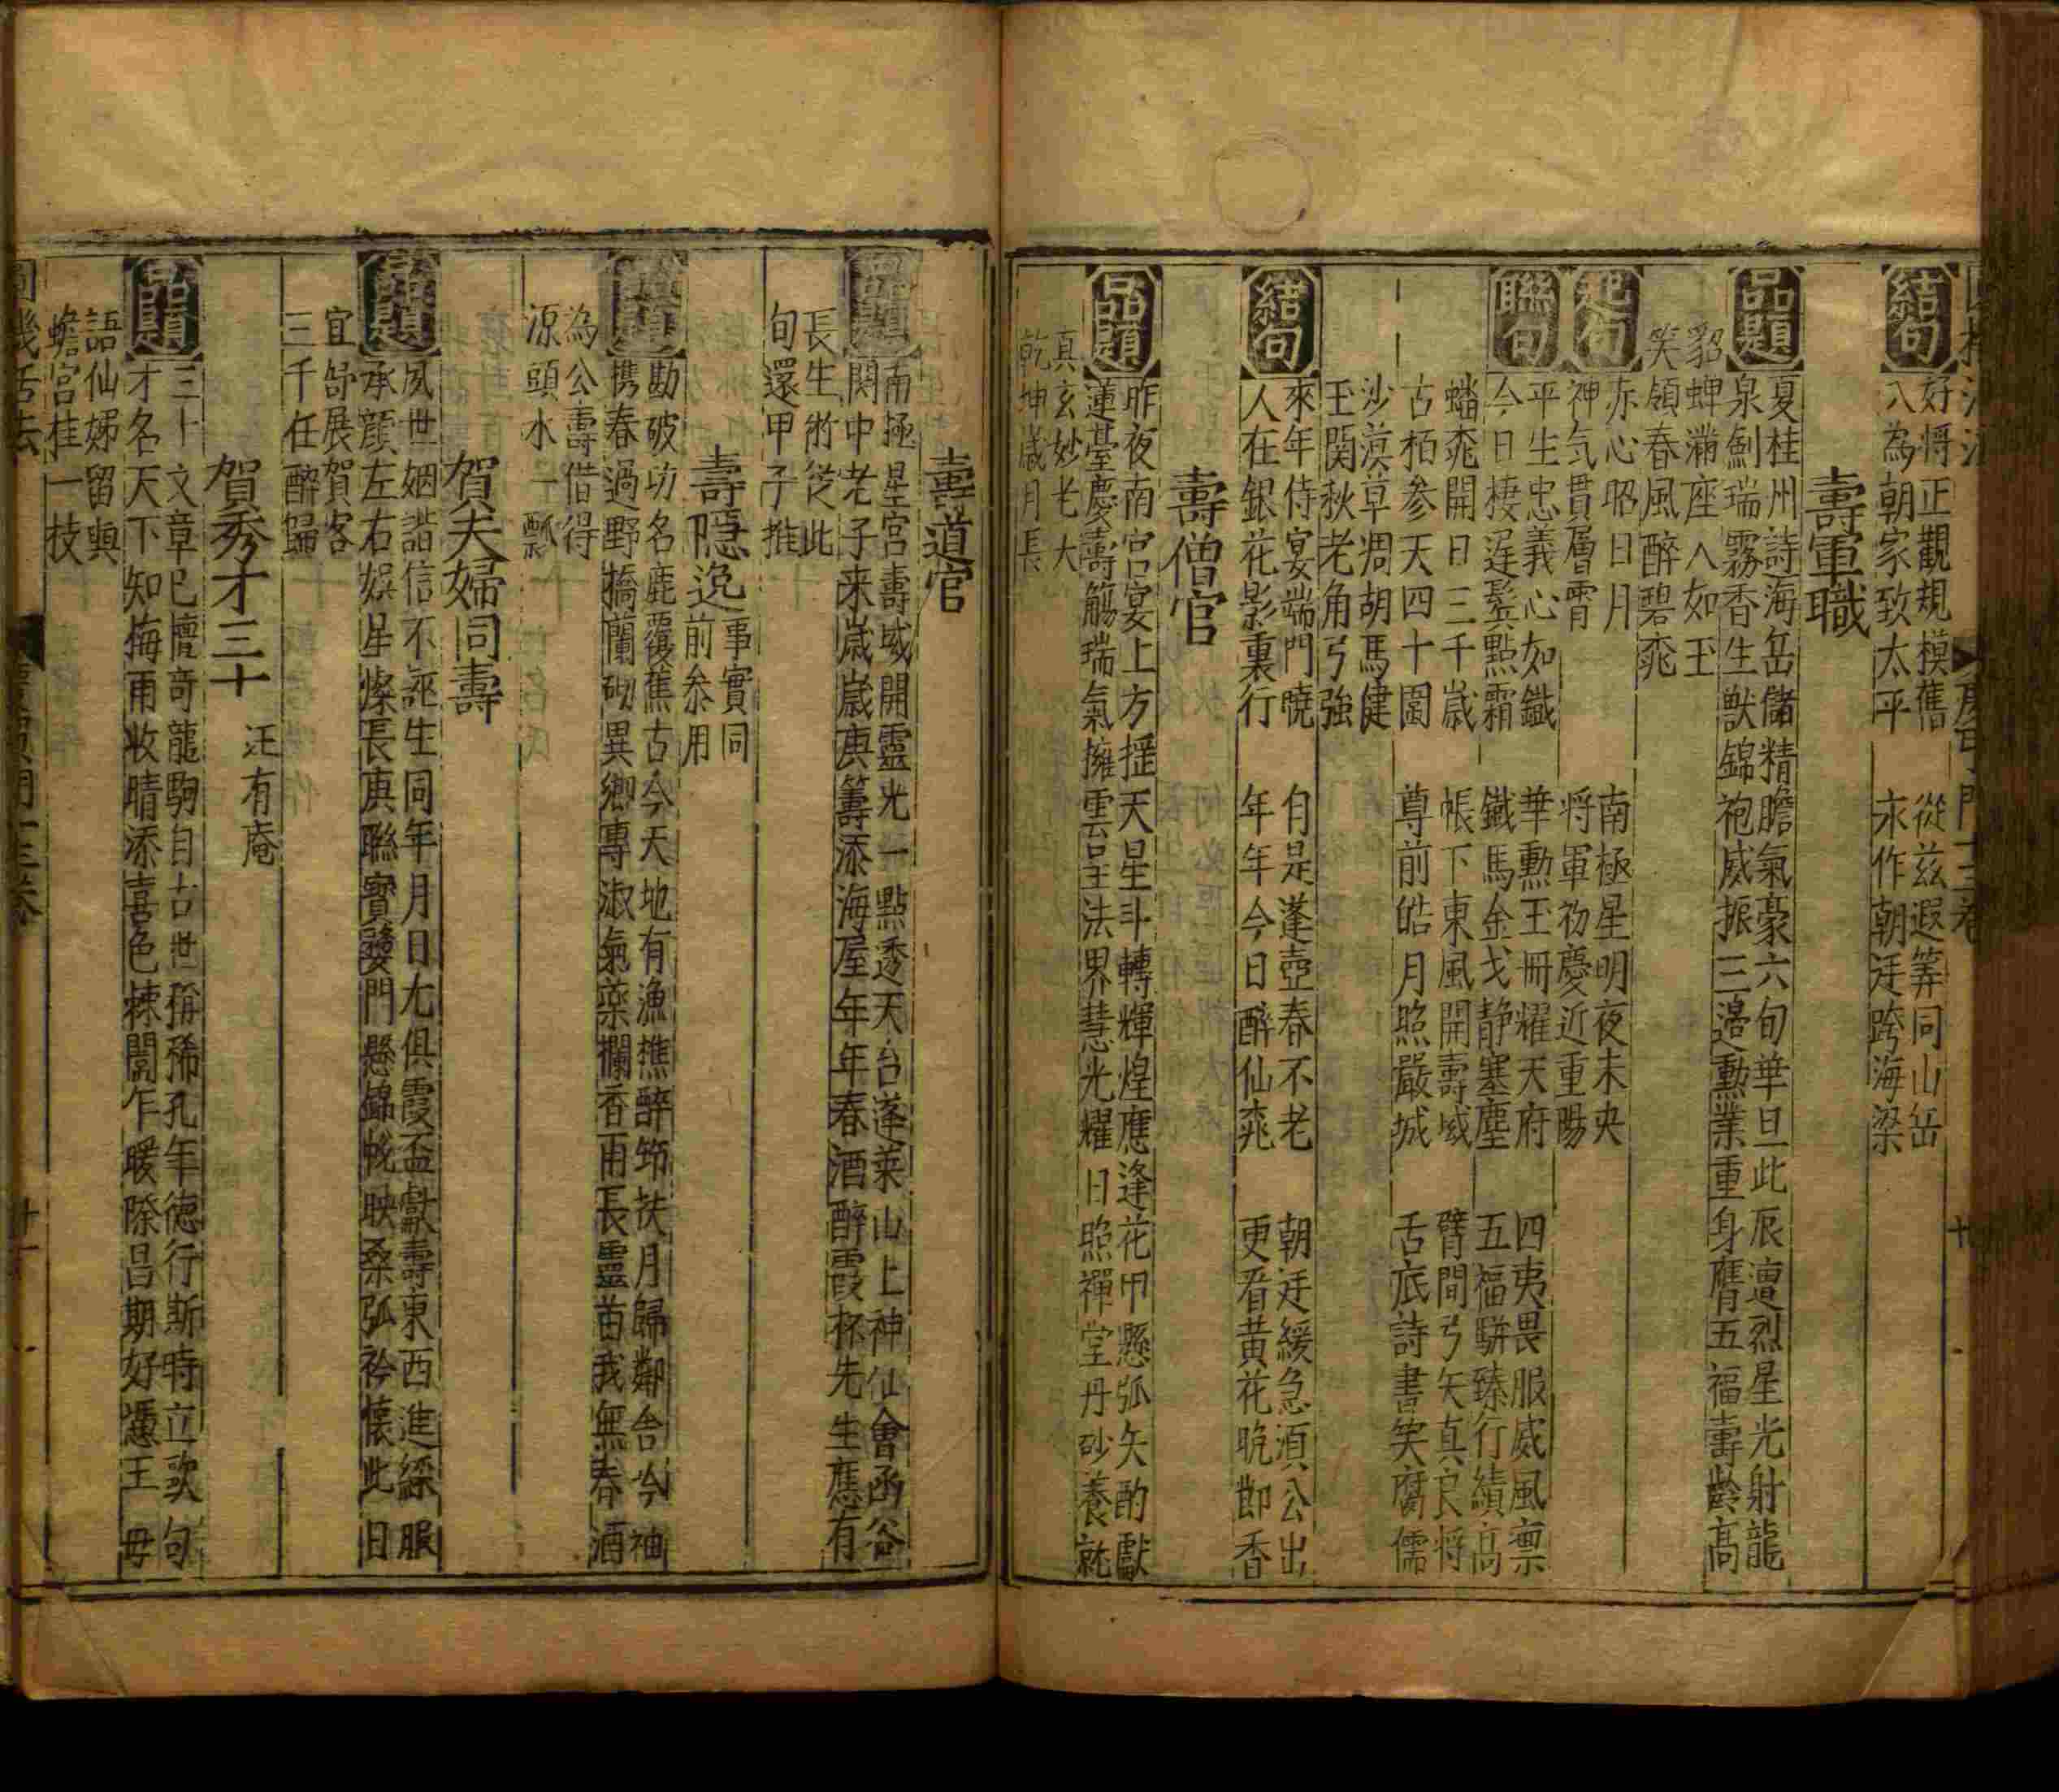 結句
好將正觀規模舊　從兹遐筭同山岳
八為朝家致太平　永作朝廷跨海梁
壽軍職
品題
夏桂州詩海岳儲精膽氣豪六旬華旦此辰遭烈星光射龍
泉劍瑞霧香生獸錦袍威振三邉勳業重身膺五福壽齡高
貂蟬滿座人如玉
笑領春風醉碧桃
起句
赤心昭日月　南極星明夜未央
神气貫層霄　將軍初慶近重陽
聯句
平生忠義心如鐵　華勳玉冊耀天府　四夷畏服威風凛
今日棲遲鬓點霜　鐵馬金戈静塞塵　五福駢臻行績高
蟠桃開日三千歲　帳下東風開壽域　臂間弓矢真良將
古栢参天四十圍　尊前皓月照嚴城　舌底詩書笑腐儒
沙漠草凋胡馬健
玉関秋老角弓強
結句
來年侍宴端門曉　自是蓬壺春不老　朝廷緩急湏公出
人在銀花影裏行　年年今日醉仙桃　更看黄花晚節香
壽僧官
品題
昨夜南宮宴上方揺天星斗轉輝煌應逢花甲懸弧矢酌獻
蓮臺慶壽觴瑞氣擁雲呈法界慧光耀日照禪堂丹砂養就
真玄妙老大
乾坤歲月長
壽道官
品題
南極星宮壽域開靈光一點透天台蓬萊山上神仙會函谷
関中老子来歲歲庚籌添海屋年年春酒醉霞杯先生應有
長生術從此
旬還甲子推
壽隱逸
事實同
前叅用
品題
勘破功名鹿覆蕉古今天地有漁樵醉笻扶月歸鄰舍今袖
携春過野橋蘭砌異郷專淑氣藥欄香雨長靈苗我無春酒
為公壽借得
源頭水一瓢
賀夫婦同壽
品題
夙世姻諧信不誣生同年月日尤俱霞盃獻壽東西進綵服
承顔左右娯星燦長庚聯寳婺門懸錦帨映桑弧衿懐此日
宜舒展賀客
三千任醉歸
賀秀才三十
汪有庵
品題
三十文章已擅竒龍駒自古世稱稀孔年德行斯時立歐句
才名天下知梅雨收晴添喜色棘闈乍暖際昌期好憑王母
語仙娣留與
蟾宮桂一技